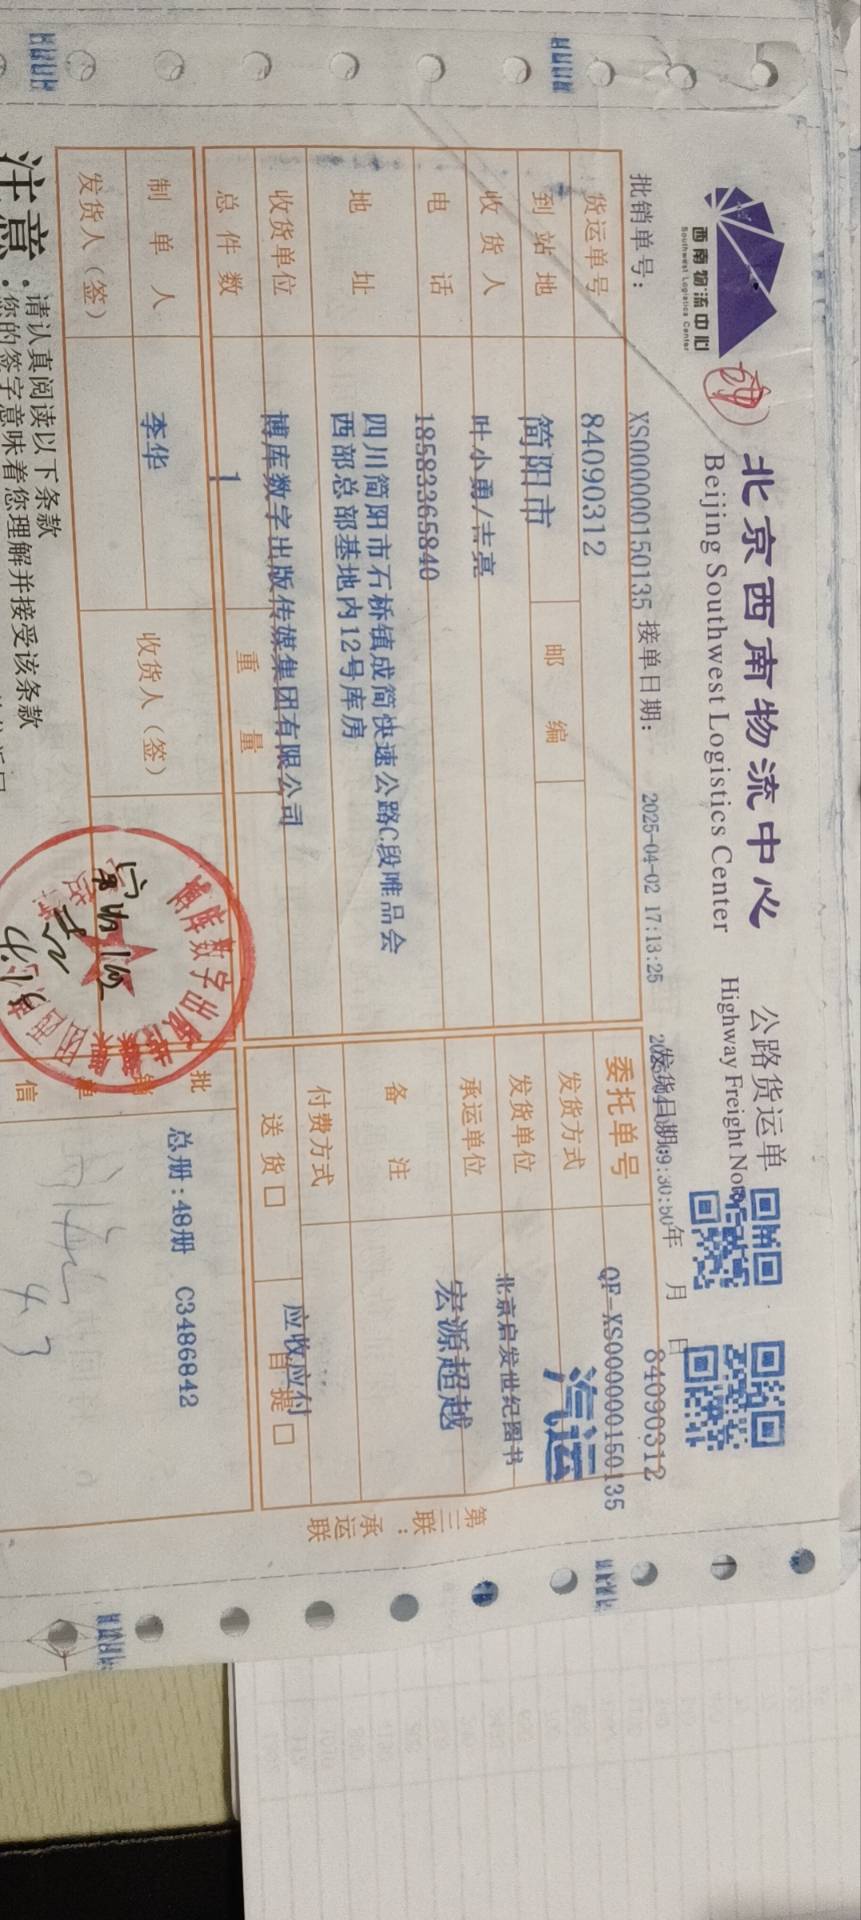 西南物流中心
Southwest Logistics Center
北京西南物流中心
Beijing Southwest Logistics Center
公路货运单
Highway Freight Note
批销单号： XS0000000150135 接单日期： 2025-04-02 17:13:25 发货日期： 年 月 日
84090312
货运单号 84090312
委托单号 QF-XS0000000150135
到站地 简阳市 邮编
发货方式 汽运
收货人 叶小勇/吉亮
发货单位 北京启发世纪图书
电话 18583365840
承运单位 宏源超越
地址 四川简阳市石桥镇成简快速公路C段唯品会
西部总部基地内12号库房
备注
收货单位 博库数字出版传媒集团有限公司
付费方式 应收应付
总件数 1 重量
送货□ 自提□
制单人 李华 收货人（签）
发货人（签）
总册：48册 C3486842
4.3
第三联：承运联
注意：
请认真阅读以下条款
您的签字意味着您理解并接受该条款